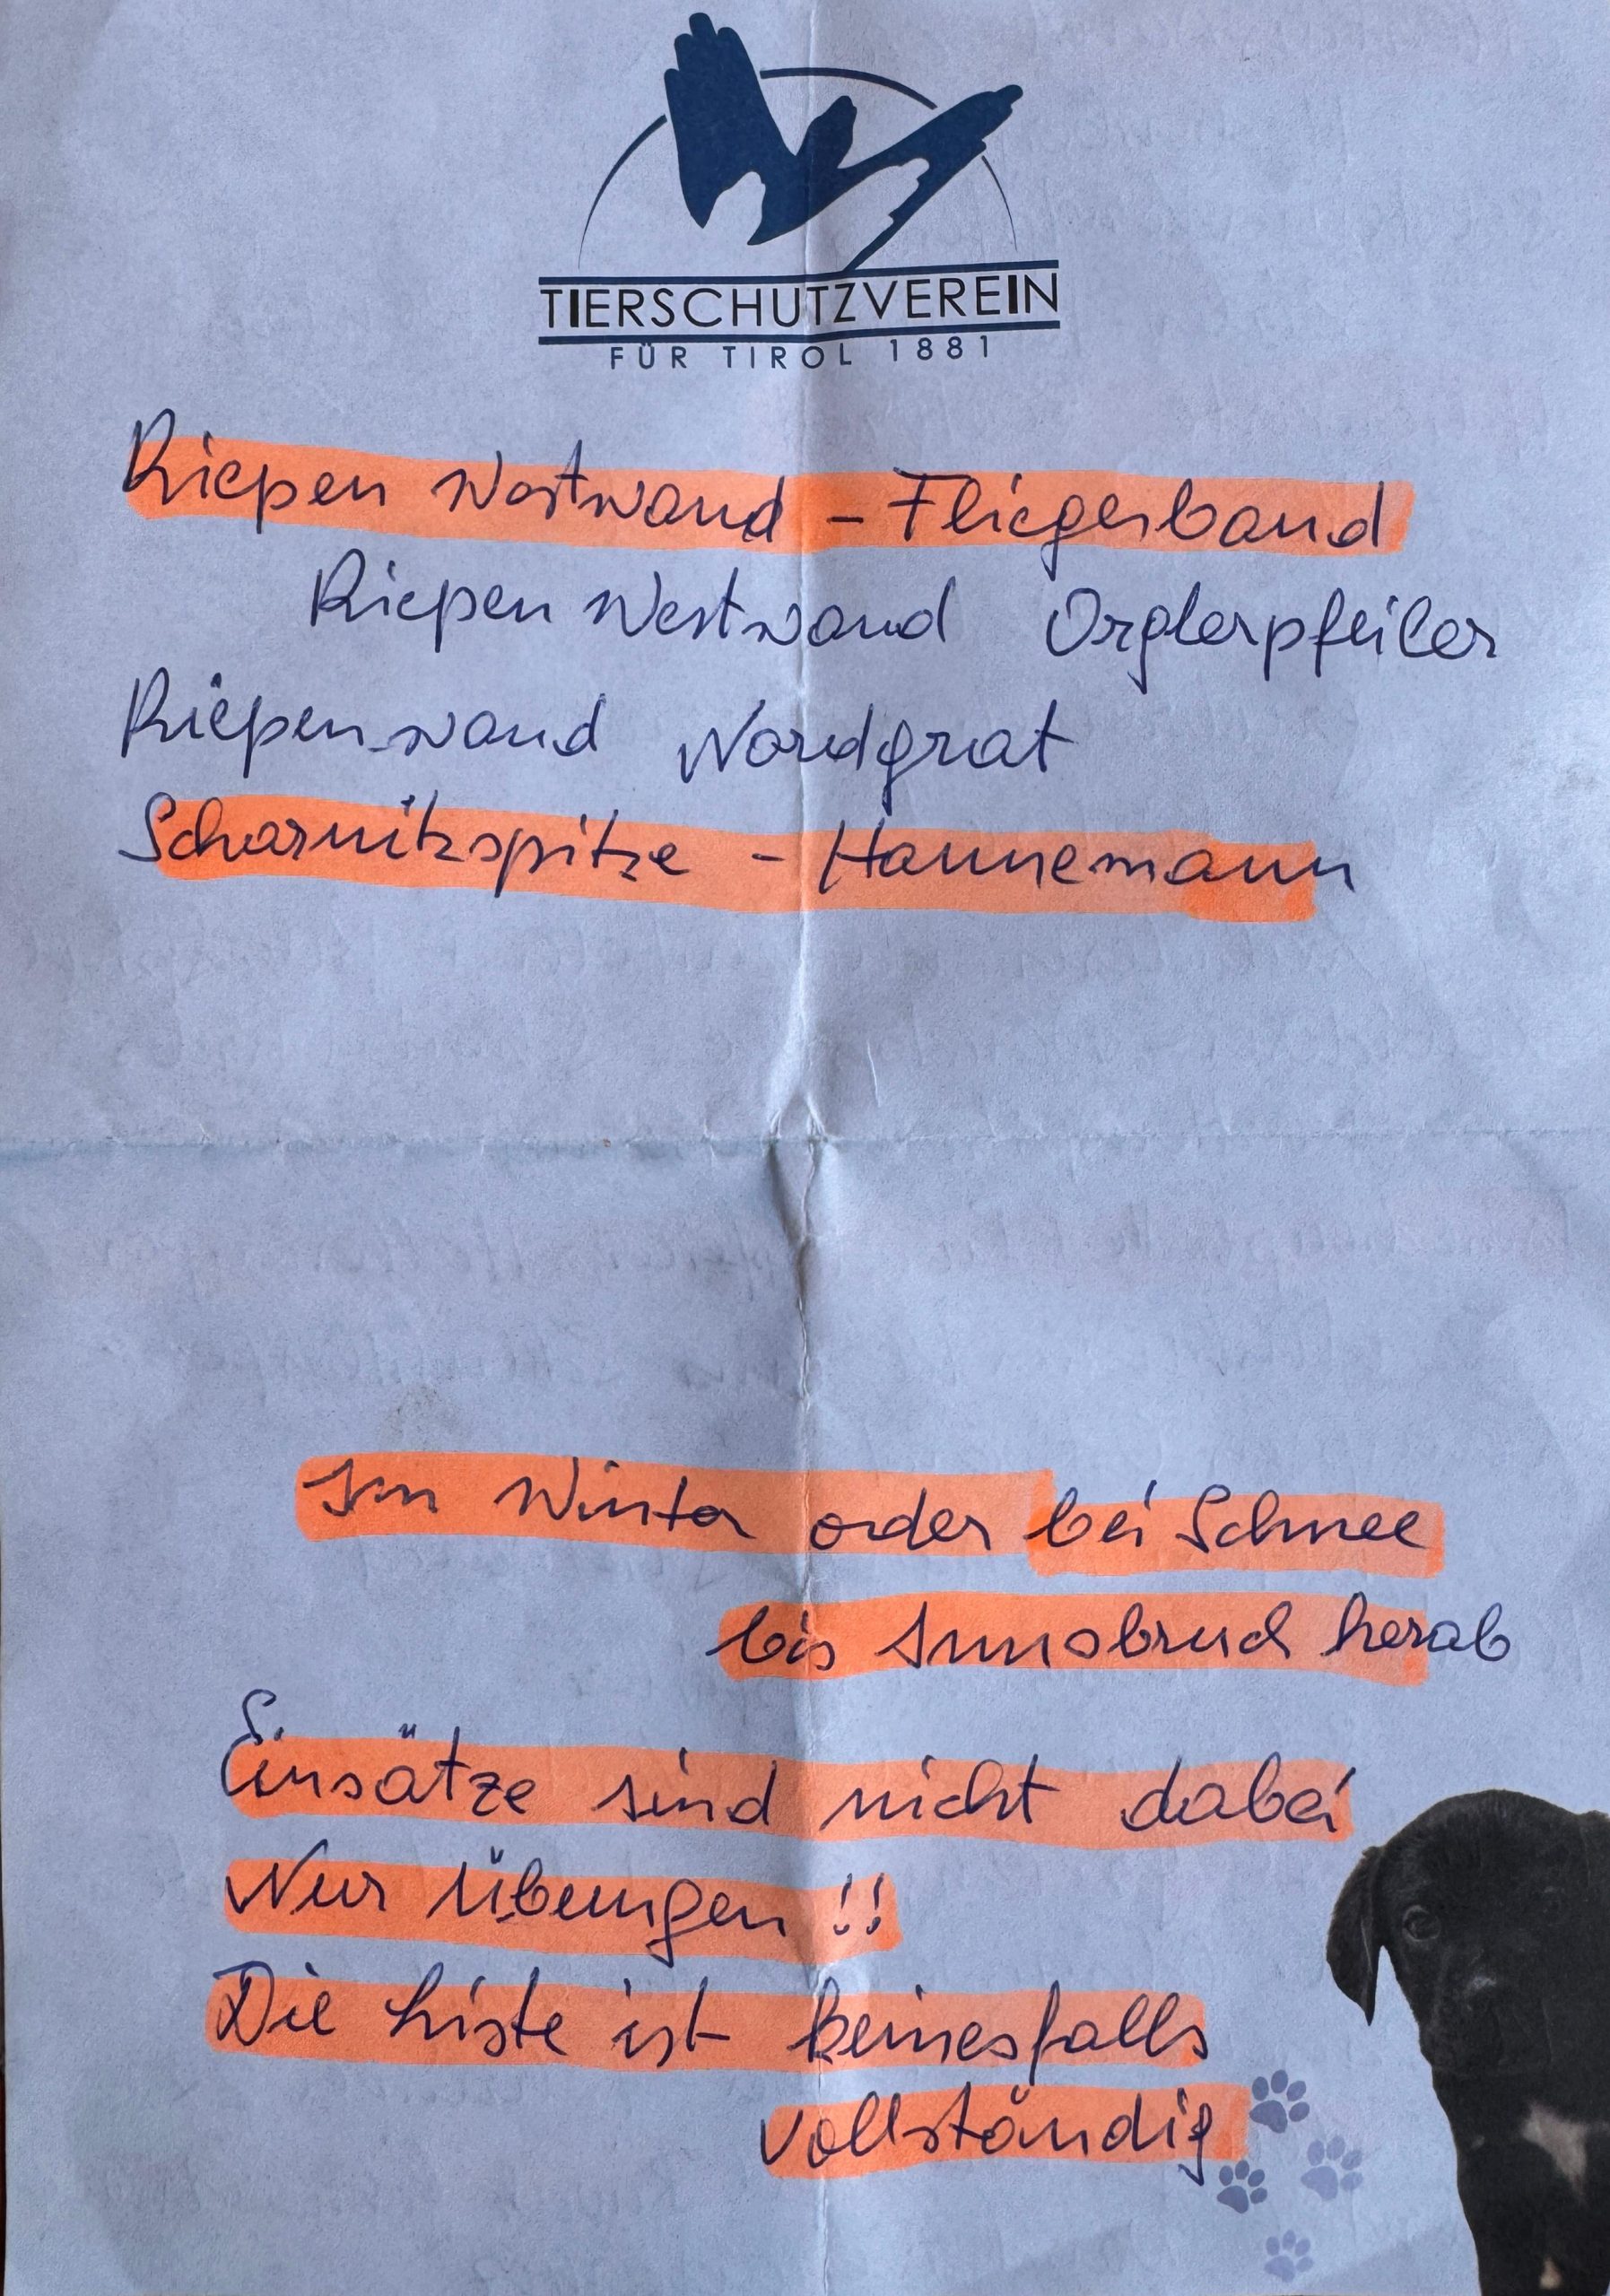 TIERSCHUTZVEREIN
FÜR TIROL 1881
Riepen Westwand – Fliegerband
Riepen Westwand Orglerpfeiler
Riepenwand Nordgrat
Scharnitzspitze – Hannemann
Im Winter oder bei Schnee
bis Innsbruck herab
Einsätze sind nicht dabei
Nur Übungen !!
Die Liste ist keinesfalls
vollständig